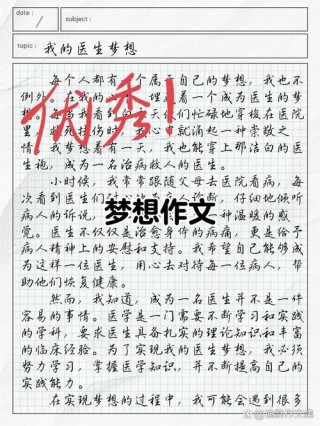 date :
/
subject:
topic : 我的医生梦想
每个人都有一个属于自己的梦想，我也不
例外。在我的心中，埋
着一个成为医生的梦
想。每当我看到
天使们忙碌地穿梭在医院
里，救死扶伤时，我心中就涌起一种崇敬之
情。我梦想着有一天，我也能穿上那洁白的医
生袍，成为一名治病救人的医生。
小时候，我常常跟随父母去医院看病，每
次看到医生们
诊断，仔细地倾听
病人的诉说，
种温暖的感
觉。医生不仅仅是治愈身体的病痛，更是给予
病人精神上的安慰和支持。我希望自己能够成
为这样一位医生，用心去对待每一位病人，帮
助他们恢复健康。
然而，我知道，成为一名医生并不是一件
容易的事情。医学是一门需要不断学习和实践
的学科，要求医生具备扎实的理论知识和丰富
的临床经验。为了实现我的医生梦想，我必须
努力学习，掌握医学知识，并不断提高自己的
实践能力。
在实现梦想的过程中，我可能会遇到很多
优秀!
梦想作文